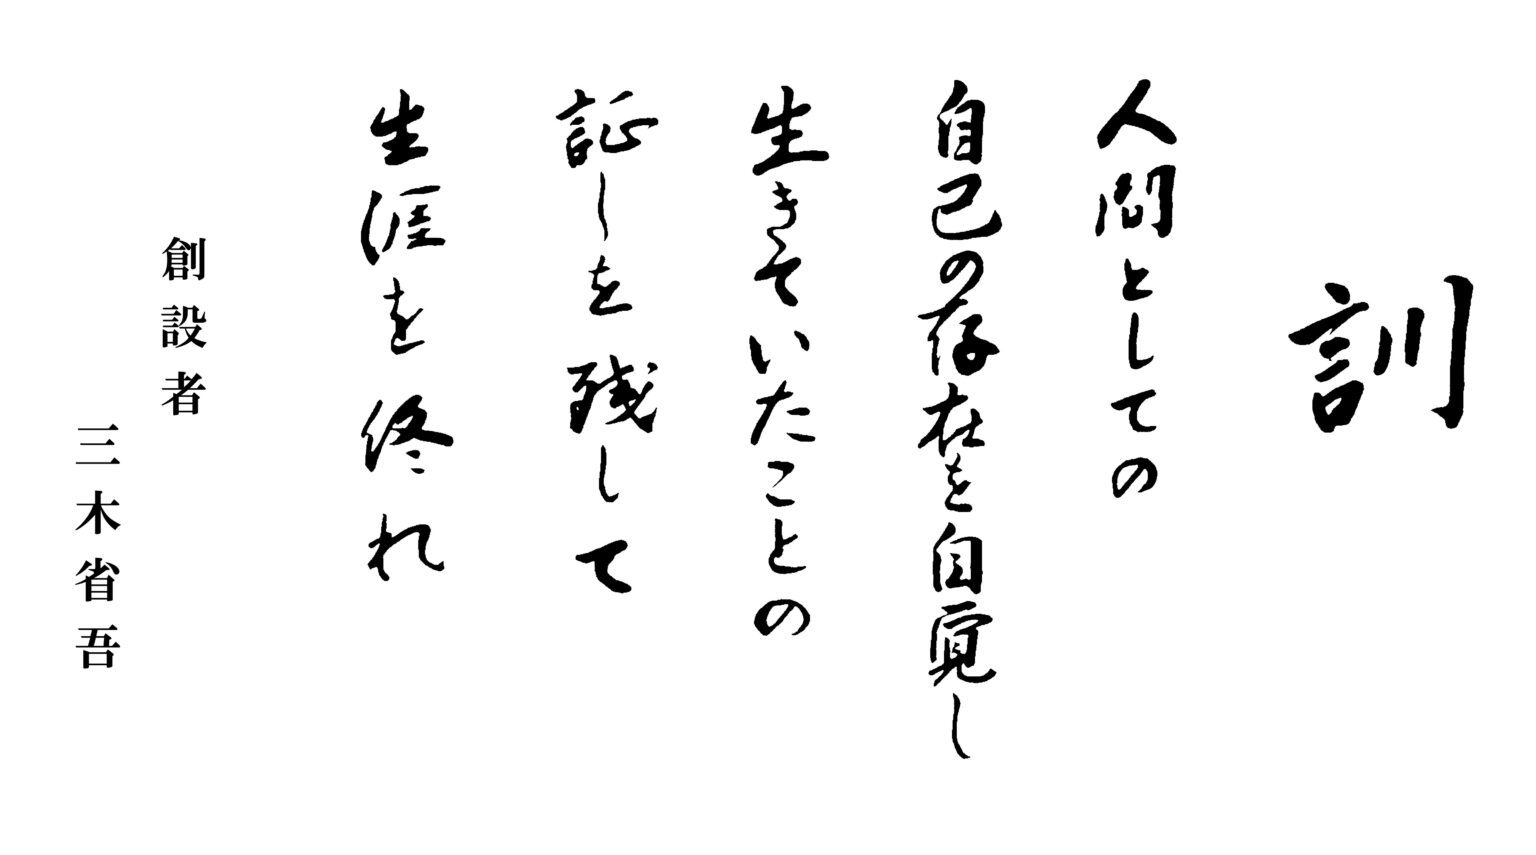 訓
人間としての
自己の存在を自覚し
生きていたことの
証しを残して
生涯を終れ
創設者
三木省吾